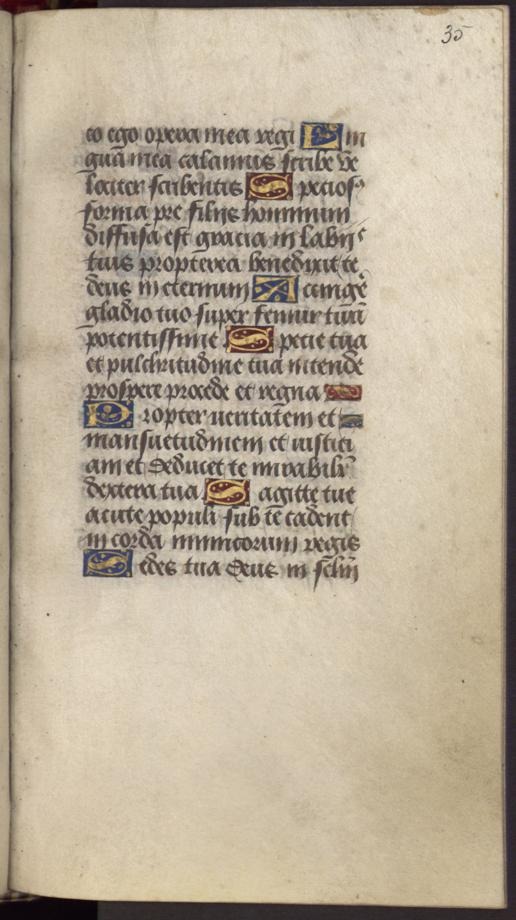 35
co ego opera mea regi Lin
guā mea calamus scribe ve
lociter scribentis Specios⁹
forma pre filijs hominum
diffusa est gracia in labiis
tuis propterea benedixit te
deus in eternum Accingē
gladio tuo super femur tuū
potentissime Specie tua
et pulchritudine tua intende
prospere procede et regna
Propter veritatem et
mansuetudinem et iustici
am et deducet te mirabilit̄
dextera tua Sagitte tue
acute populi sub te cadent
in corda inimicorum regis
Sedes tua deus in sc̄lm̄